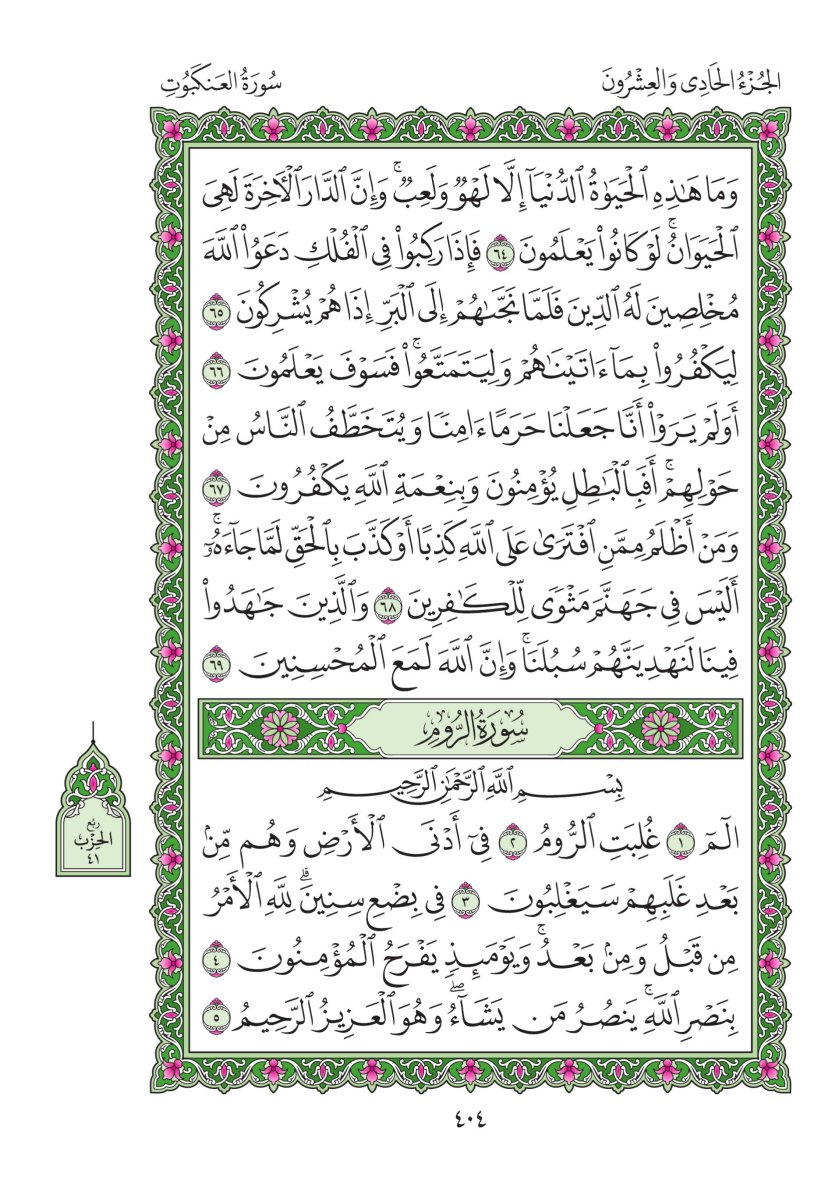 الجُزْءُ الحَادِى وَالعِشْرُونَ
سُورَةُ العَنكَبُوتِ
وَمَا هَٰذِهِ ٱلْحَيَوٰةُ ٱلدُّنْيَآ إِلَّا لَهْوٌ وَلَعِبٌ ۚ وَإِنَّ ٱلدَّارَ ٱلْـَٔاخِرَةَ لَهِىَ
ٱلْحَيَوَانُ ۚ لَوْ كَانُوا۟ يَعْلَمُونَ ٦٤ فَإِذَا رَكِبُوا۟ فِى ٱلْفُلْكِ دَعَوُا۟ ٱللَّهَ
مُخْلِصِينَ لَهُ ٱلدِّينَ فَلَمَّا نَجَّىٰهُمْ إِلَى ٱلْبَرِّ إِذَا هُمْ يُشْرِكُونَ ٦٥
لِيَكْفُرُوا۟ بِمَآ ءَاتَيْنَٰهُمْ وَلِيَتَمَتَّعُوا۟ ۚ فَسَوْفَ يَعْلَمُونَ ٦٦
أَوَلَمْ يَرَوْا۟ أَنَّا جَعَلْنَا حَرَمًا ءَامِنًا وَيُتَخَطَّفُ ٱلنَّاسُ مِنْ
حَوْلِهِمْ ۚ أَفَبِٱلْبَٰطِلِ يُؤْمِنُونَ وَبِنِعْمَةِ ٱللَّهِ يَكْفُرُونَ ٦٧
وَمَنْ أَظْلَمُ مِمَّنِ ٱفْتَرَىٰ عَلَى ٱللَّهِ كَذِبًا أَوْ كَذَّبَ بِٱلْحَقِّ لَمَّا جَآءَهُۥٓ ۚ
أَلَيْسَ فِى جَهَنَّمَ مَثْوًى لِّلْكَٰفِرِينَ ٦٨ وَٱلَّذِينَ جَٰهَدُوا۟
فِينَا لَنَهْدِيَنَّهُمْ سُبُلَنَا ۚ وَإِنَّ ٱللَّهَ لَمَعَ ٱلْمُحْسِنِينَ ٦٩
سُورَةُ الرُّومِ
بِسْمِ ٱللَّهِ ٱلرَّحْمَٰنِ ٱلرَّحِيمِ
الٓمٓ ١ غُلِبَتِ ٱلرُّومُ ٢ فِىٓ أَدْنَى ٱلْأَرْضِ وَهُم مِّنۢ
بَعْدِ غَلَبِهِمْ سَيَغْلِبُونَ ٣ فِى بِضْعِ سِنِينَ ۗ لِلَّهِ ٱلْأَمْرُ
مِن قَبْلُ وَمِنۢ بَعْدُ ۚ وَيَوْمَئِذٍ يَفْرَحُ ٱلْمُؤْمِنُونَ ٤
بِنَصْرِ ٱللَّهِ ۚ يَنصُرُ مَن يَشَآءُ ۖ وَهُوَ ٱلْعَزِيزُ ٱلرَّحِيمُ ٥
ربُع
الحِزْب
٤١
٤٠٤